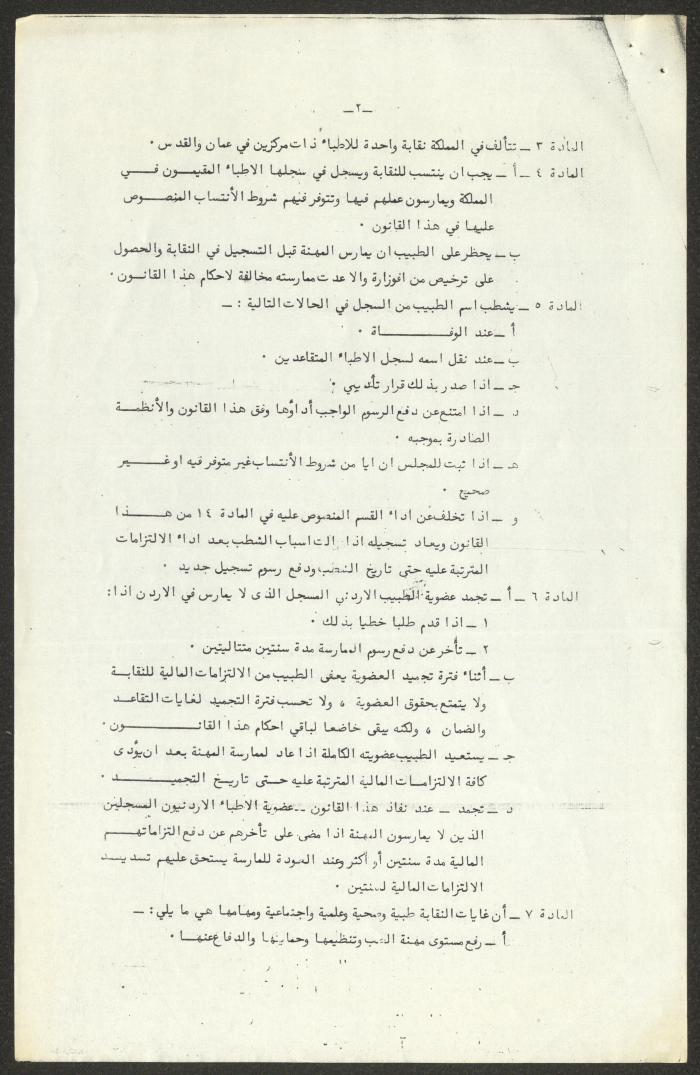 ــ٢ــ
المادة ٣ ــ تتألف في المملكة نقابة واحدة للاطباء ذات مركزين في عمان والقدس ٠
المادة ٤ ــ أ ــ يجب ان ينتسب للنقابة ويسجل في سجلها الاطباء المقيمون فــي
المملكة ويمارسون عملهم فيها وتتوفر فيهم شروط الأنتساب المنصوص
عليها في هذا القانون ٠
ب ــ يحظر على الطبيب ان يمارس المهنة قبل التسجيل في النقابة والحصول
على ترخيص من افوزارة والا عدت ممارسته مخالفة لاحكام هذا القانــون ٠
المادة ٥ ــ يشطب اسم الطبيب من السجل في الحالات التالية : ــ
أ ــ عند الوفــــــاة ٠
ب ــ عند نقل اسمه لسجل الاطباء المتقاعدين ٠
جـ ــ اذا صدر بذلك قرار تأديبي ٠
د ــ اذا امتنع عن دفع الرسوم الواجب أداؤها وفق هذا القانون والأنظمــة
الصادرة بموجبه ٠
هـ ــ اذا ثبت للمجلس ان ايا من شروط الأنتساب غير متوفر فيه او غـــير
صحيح ٠
و ــ اذا تخلف عن اداء القسم المنصوص عليه في المادة ١٤ من هــــذا
القانون ويعاد تسجيله اذا الت اسباب الشطب بعد اداء الالتزامات
المترتبة عليه حتى تاريخ الشطب ودفع رسوم تسجيل جديد ٠
المادة ٦ ــ أ ــ تجمد عضوية الطبيب الاردني المسجل الذى لا يمارس في الاردن اذا :
١ ــ اذا قدم طلبا خطيا بذلك ٠
٢ ــ تأخر عن دفع رسوم الممارسة مدة سنتين متتاليتين ٠
ب ــ أثناء فترة تجميد العضوية يعفى الطبيب من الالتزامات المالية للنقابــة
ولا يتمتع بحقوق العضوية ، ولا تحسب فترة التجميد لغايات التقاعـد
والضمان ، ولكنه يبقى خاضعا لباقي احكام هذا القانـــــون ٠
جـ ــ يستعيد الطبيب عضويته الكاملة اذا عاد لممارسة المهنة بعد ان يؤدى
كافة الالتزامـات المالية المترتبة عليه حــتى تاريــخ التجميـــد ٠
د ــ تجمد ــ عند نفاذ هذا القانون ــ عضوية الاطباء الاردنيون المسجلين
الذين لا يمارسون المهنة اذا مضى على تأخرهم عن دفع التزاماتهــم
المالية مدة سنتين أو أكثر وعند العودة للمارسة يستحق عليهم تسديــد
الالتزامات المالية لسنتين ٠
المادة ٧ ــ أن غايات النقابة طبية وصحية وعلمية واجتماعية ومهامها هي ما يلي : ــ
أ ــ رفع مستوى مهنة الطب وتنظيمها وحمايتها والدفاع عنهــا ٠